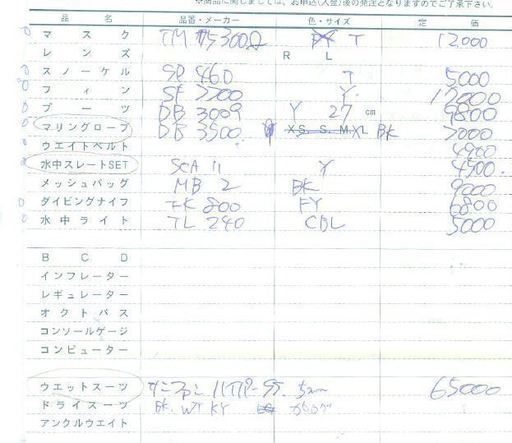 ※商品に関しましては、お申込(入金)後の発注となりますのでご了承下さい。
品 名 品番・メーカー 色・サイズ 定 価
マスク TM T 12000
レンズ R L
スノーケル SP 460 T 5000
フィン SF Y
ブーツ DB 3009 Y 27 cm 9800
マリングローブ DB 3500 XS S M XL BK 3000
ウエイトベルト 4900
水中スレートSET SCA 11 Y 4500
メッシュバッグ MB 2 BK 9000
ダイビングナイフ FK 800 FY 6800
水中ライト TL 240 CBL 5000
BCD
インフレーター
レギュレーター
オクトパス
コンソールゲージ
コンピューター
ウエットスーツ 65000
ドライスーツ BK. WT KY
アンクルウエイト